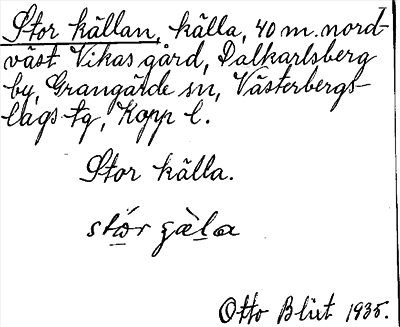 Stor källan, källa, 40 m. nord-
väst Vikas gård, Dalkarlsberg
by, Grangärde sn, Västerbergs-
lags tg, Kopp l.
Stor källa.
stór gàla
Otto Blixt 1935.